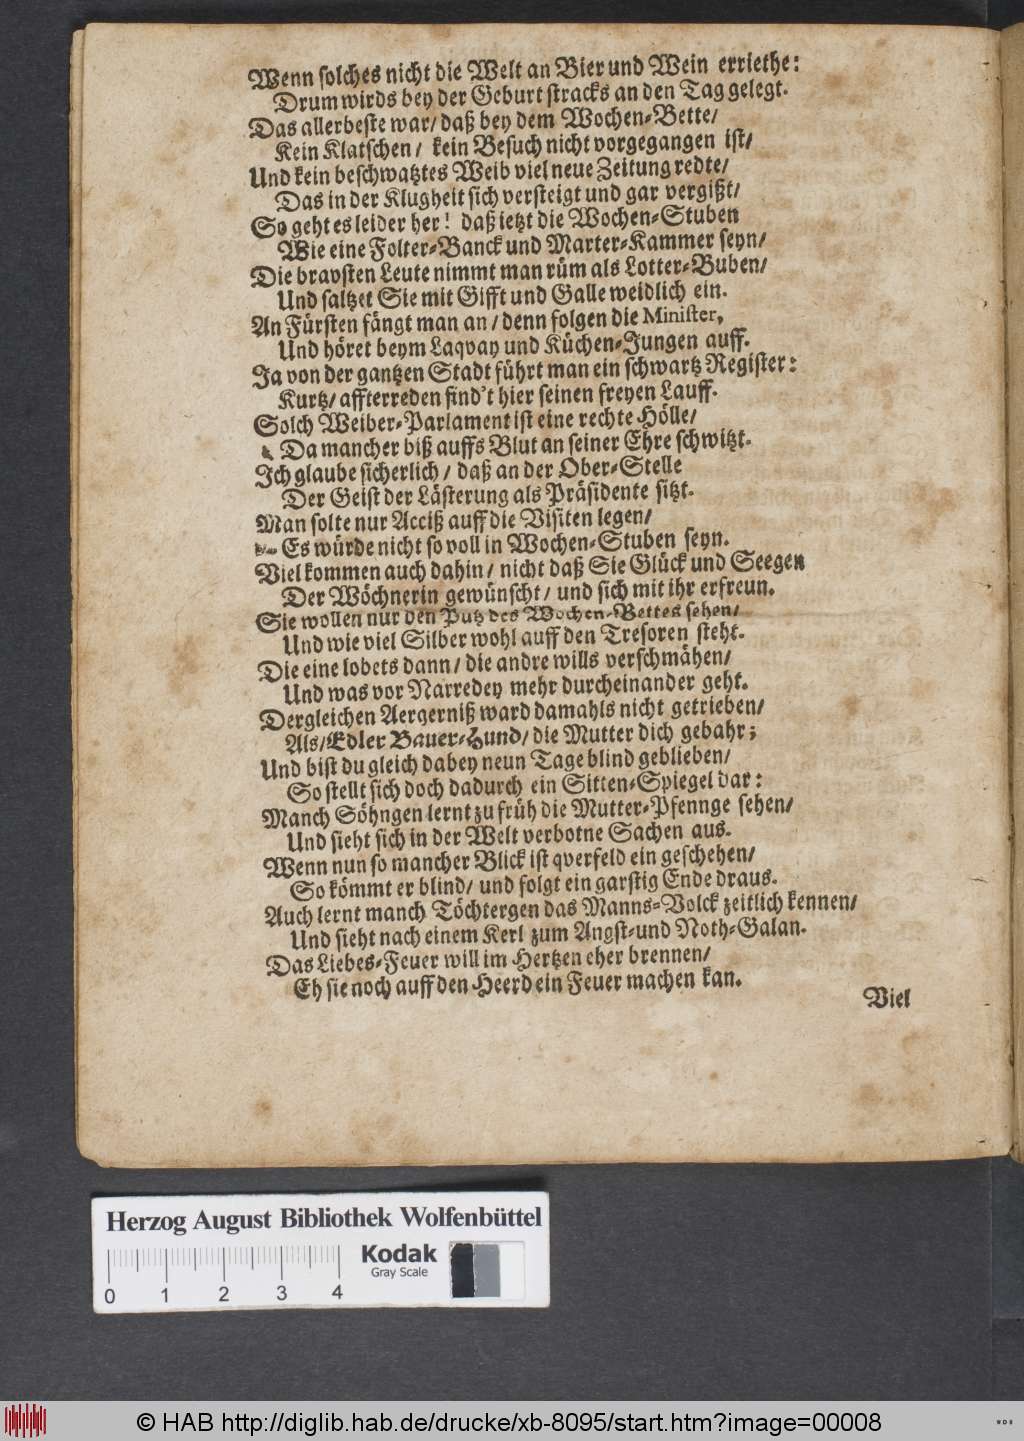 Wenn solches nicht die Welt an Bier und Wein erriethe:
Drum wirds bey der Geburt stracks an den Tag gelegt.
Das allerbeste war/ daß bey dem Wochen-Bette/
Kein Klatschen/ kein Besuch nicht vorgegangen ist/
Und kein beschwatztes Weib viel neue Zeitung redte/
Das in der Klugheit sich versteigt und gar vergißt/
So geht es leider her! daß ietzt die Wochen-Stuben
Wie eine Folter-Banck und Marter-Kammer seyn/
Die bravsten Leute nimmt man rüm als Lotter-Buben/
Und saltzet Sie mit Gifft und Galle weidlich ein.
An Fürsten fängt man an/ denn folgen die Minister,
Und höret beym Laqvay und Küchen-Jungen auff.
Ja von der gantzen Stadt führt man ein schwartz Register:
Kurtz/ affterreden find't hier seinen freyen Lauff.
Solch Weiber-Parlament ist eine rechte Hölle/
Da mancher biß auffs Blut an seiner Ehre schwitzt.
Ich glaube sicherlich/ daß an der Ober-Stelle
Der Geist der Lästerung als Präsidente sitzt.
Man solte nur Acciß auff die Visiten legen/
Es würde nicht so voll in Wochen-Stuben seyn.
Viel kommen auch dahin/ nicht daß Sie Glück und Seegen
Der Wöchnerin gewünscht/ und sich mit ihr erfreun.
Sie wollen nur den Putz des Wochen-Bettes sehen/
Und wie viel Silber wohl auff den Tresoren steht.
Die eine lobets dann/ die andre wills verschmähen/
Und was vor Narredey mehr durcheinander geht.
Dergleichen Aergerniß ward damahls nicht getrieben/
Als/ Edler Bauer-Hund/ die Mutter dich gebahr;
Und bist du gleich dabey neun Tage blind geblieben/
So stellt sich doch dadurch ein Sitten-Spiegel dar:
Manch Söhngen lernt zu früh die Mutter-Pfennge sehen/
Und sieht sich in der Welt verbotne Sachen aus.
Wenn nun so mancher Blick ist qverfeld ein geschehen/
So kömmt er blind/ und folgt ein garstig Ende draus.
Auch lernt manch Töchtergen das Manns-Volck zeitlich kennen/
Und sieht nach einem Kerl zum Angst-und Noth-Galan.
Das Liebes-Feuer will im Hertzen eher brennen/
Eh sie noch auff den Heerd ein Feuer machen kan.
Viel
Herzog August Bibliothek Wolfenbüttel
Kodak
Gray Scale
0 1 2 3 4
© HAB http://diglib.hab.de/drucke/xb-8095/start.htm?image=00008